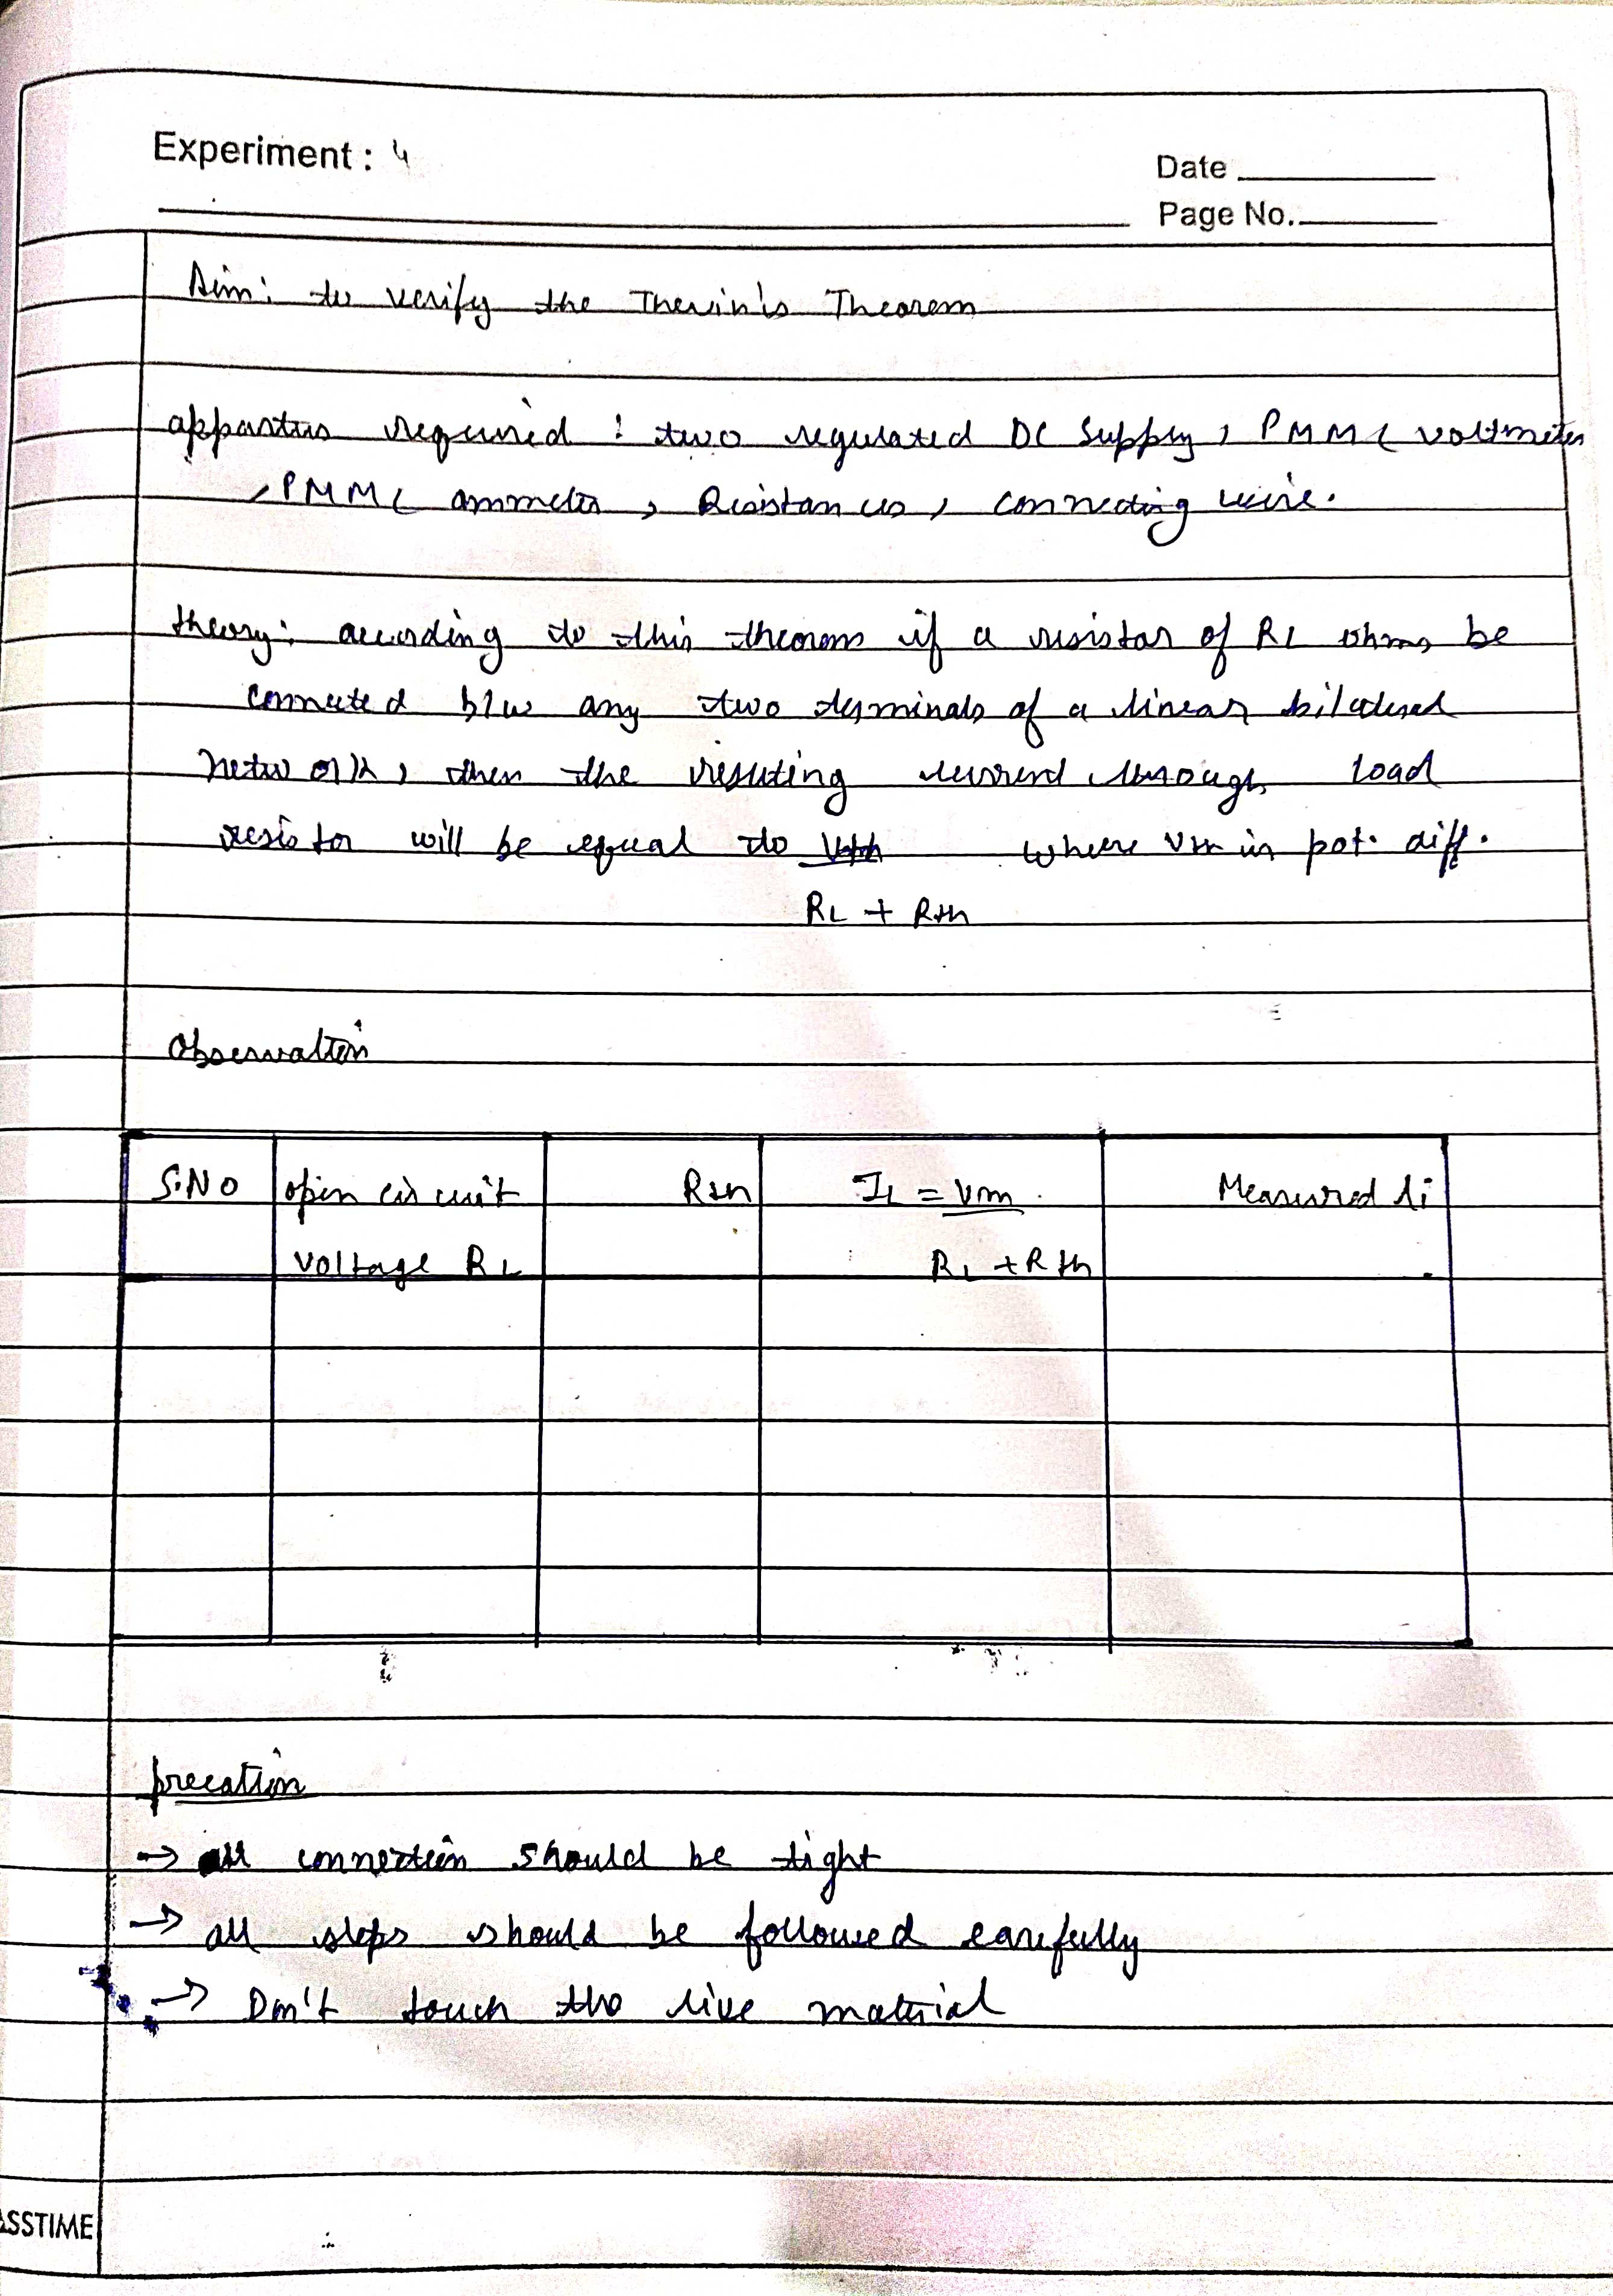 Experiment : 4
Date
Page No.
Aim: to verify the Thevin's Theorem
appartus required : two regulated DC Supply, PMMC voltmeter
, PMMC ammeter, Resistances, connecting wire.
theory: according to this theorem if a resistor of RL ohms be
connected b/w any two terminals of a linear bilateral
network, then the resulting current through load
resistor will be equal to Vth where Vth is pot. diff.
RL + Rth
Observation
S.NO open circuit Rth IL = Vth Measured Ii
voltage RL RL + Rth
precation
→ all connection should be tight
→ all steps should be followed carefully
→ Don't touch the live material
ASSTIME